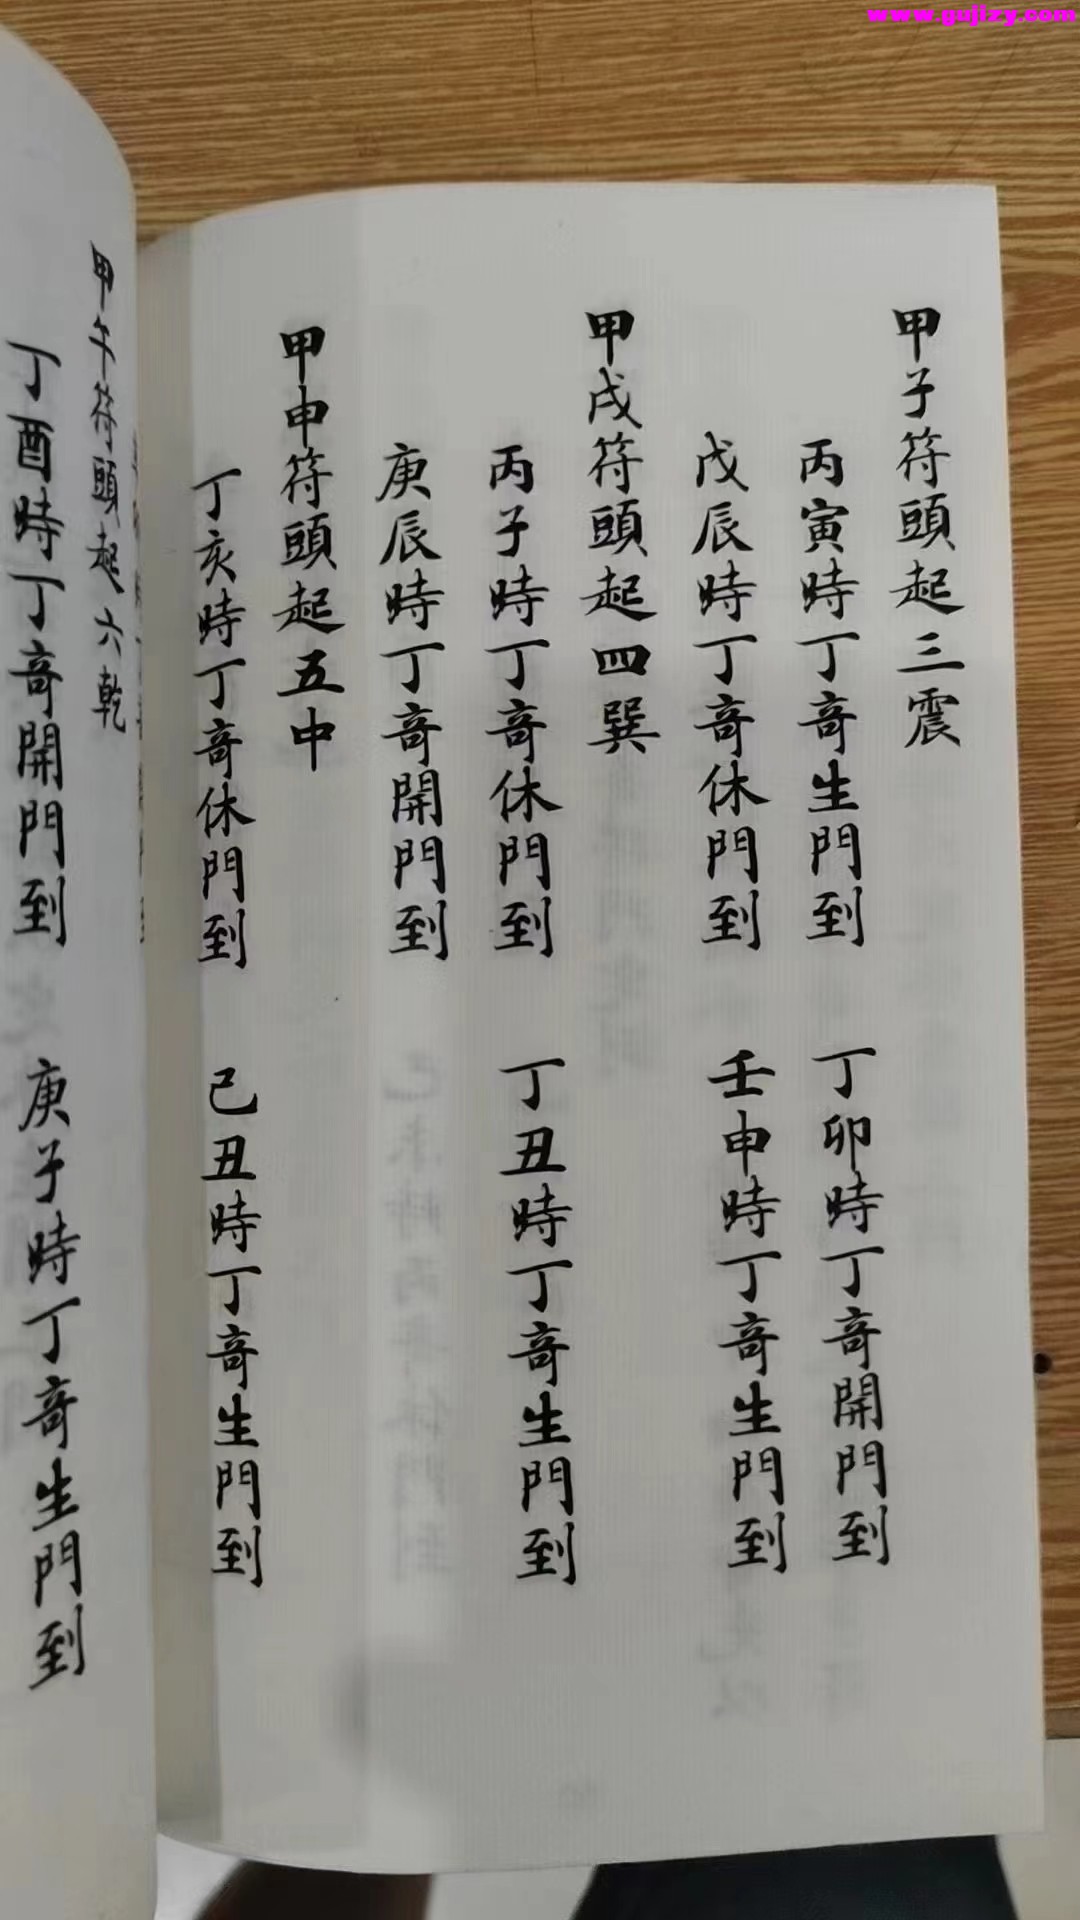 www.gujizy.com
甲子符頭起三震
丙寅時丁奇生門到 丁卯時丁奇開門到
戊辰時丁奇休門到 壬申時丁奇生門到
甲戌符頭起四巽
丙子時丁奇休門到 丁丑時丁奇生門到
庚辰時丁奇開門到
甲申符頭起五中
丁亥時丁奇休門到 己丑時丁奇生門到
甲午符頭起六乾
丁酉時丁奇開門到 庚子時丁奇生門到